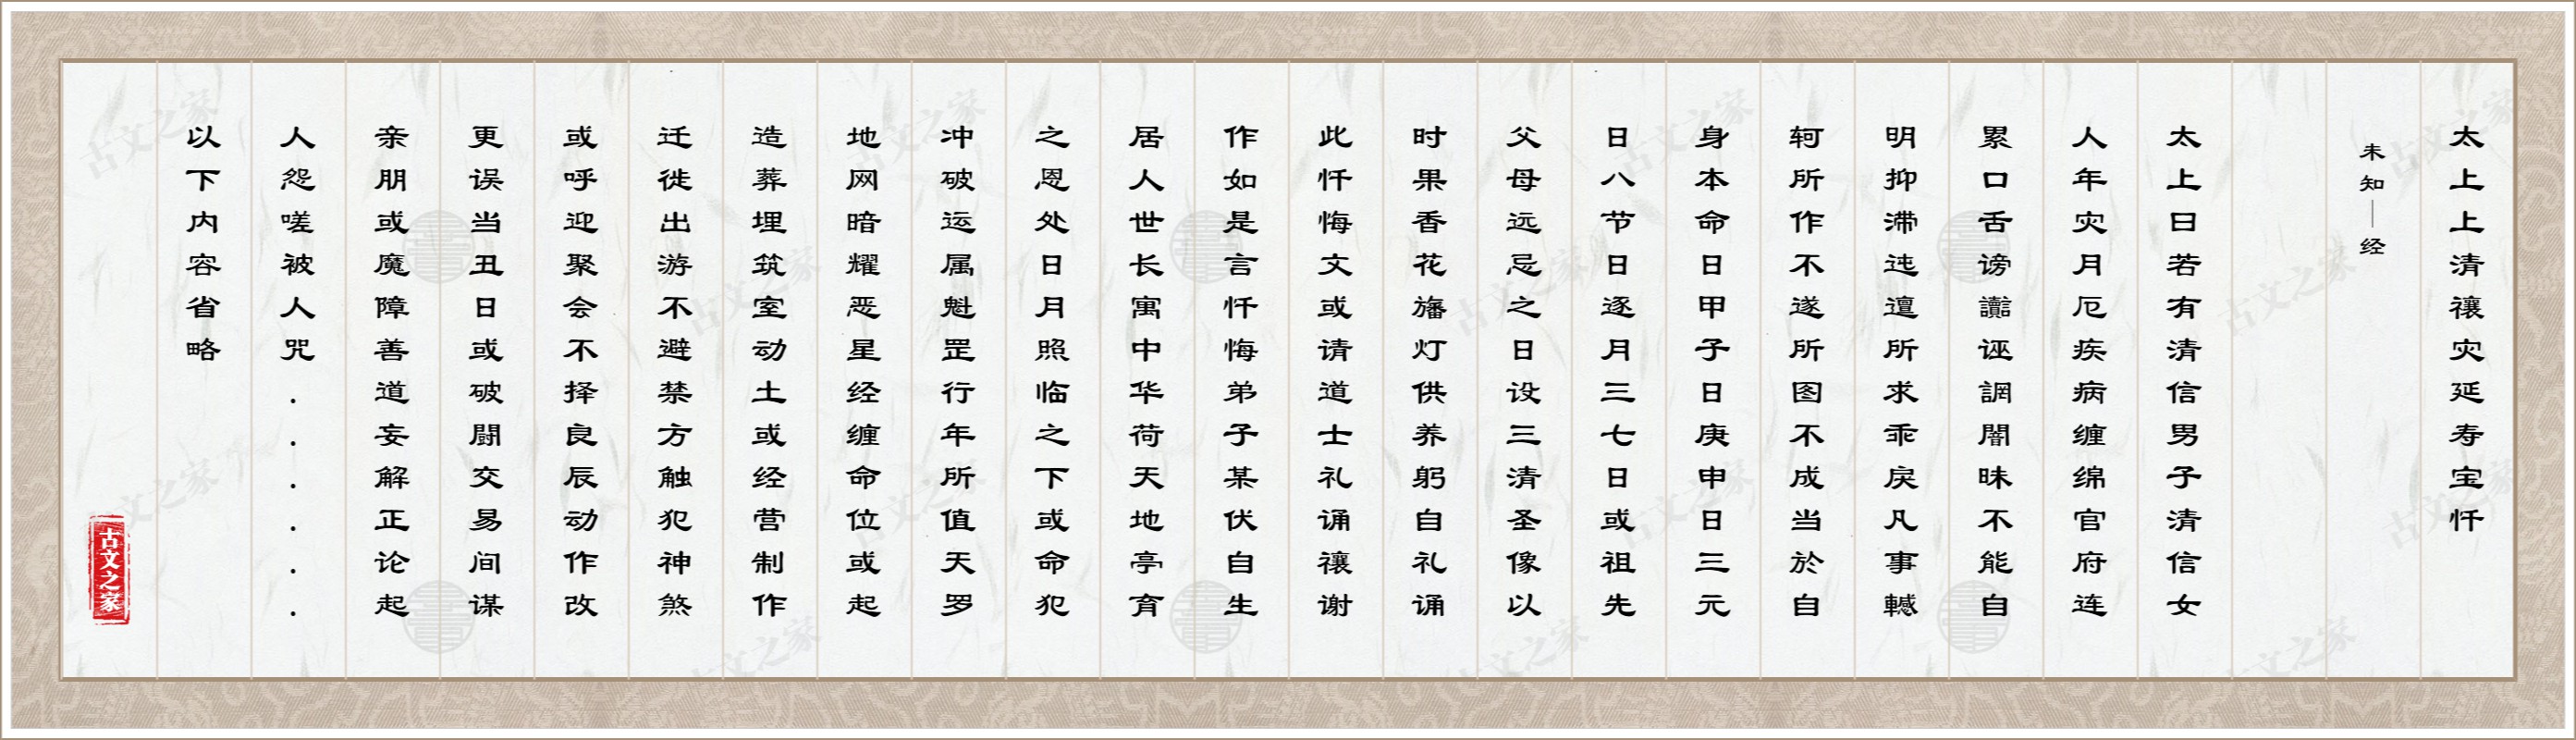 太上上清禳灾延寿宝忏
未知｜经
太上曰若有清信男子清信女
人年灾月厄疾病缠绵官府连
累口舌谤讟诬誷闇昧不能自
明抑滞迍邅所求乖戾凡事轗
轲所作不遂所图不成当於自
身本命日甲子日庚申日三元
日八节日逐月三七日或祖先
父母远忌之日设三清圣像以
时果香花旛灯供养躬自礼诵
此忏悔文或请道士礼诵禳谢
作如是言忏悔弟子某伏自生
居人世长寓中华荷天地亭育
之恩处日月照临之下或命犯
冲破运属魁罡行年所值天罗
地网暗耀恶星经缠命位或起
造葬埋筑室动土或经营制作
迁徙出游不避禁方触犯神煞
或呼迎聚会不择良辰动作改
更误当丑日或破鬭交易间谋
亲朋或魔障善道妄解正论起
人怨嗟被人咒......
以下内容省略
古文之家